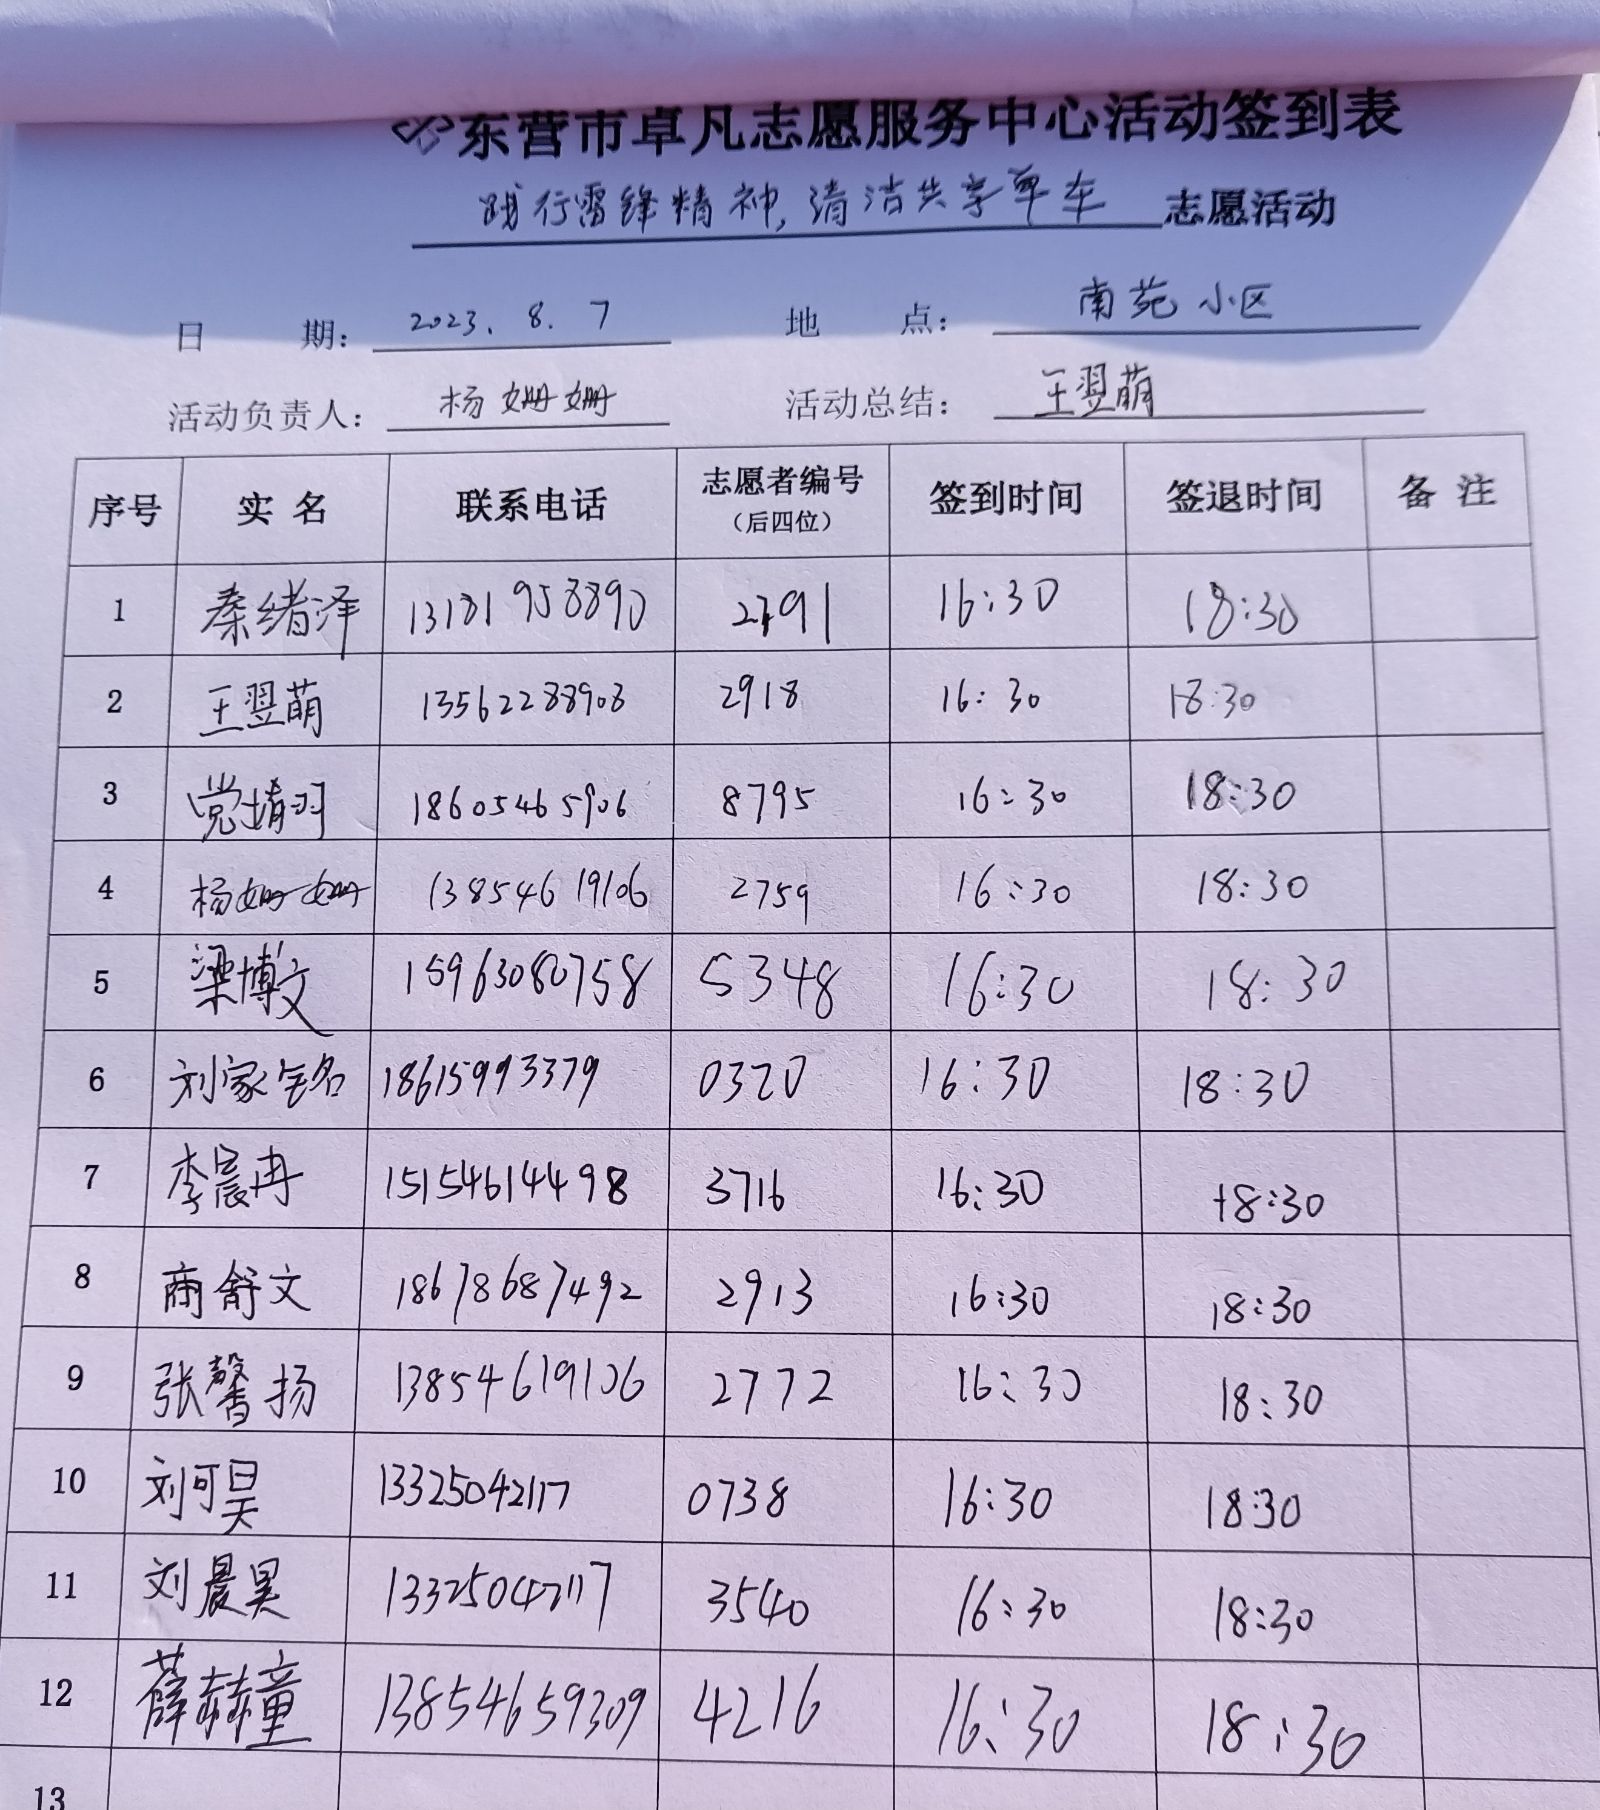 东营市卓凡志愿服务中心活动签到表
践行雷锋精神,清洁共享单车 志愿活动
日 期: 2023.8.7 地 点: 南苑小区
活动负责人: 杨姗姗 活动总结: 王翌萌
序号 实名 联系电话 志愿者编号(后四位) 签到时间 签退时间 备注
1 秦绪泽 13181958890 2791 16:30 18:30
2 王翌萌 13562288908 2918 16:30 18:30
3 党堉羽 18605465906 8795 16:30 18:30
4 杨姗姗 13854619106 2759 16:30 18:30
5 梁博文 15963080758 5348 16:30 18:30
6 刘家铭 18615993379 0320 16:30 18:30
7 李宸冉 15154614498 3716 16:30 18:30
8 商舒文 18678687492 2913 16:30 18:30
9 张馨扬 13854619106 2772 16:30 18:30
10 刘可昊 13325042117 0738 16:30 18:30
11 刘晨昊 13325042117 3540 16:30 18:30
12 薛赫童 13854659309 4216 16:30 18:30
13